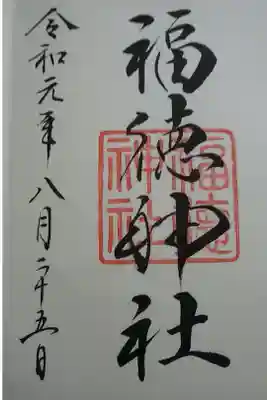 福徳神社
令和元年八月二十五日
福徳
神社